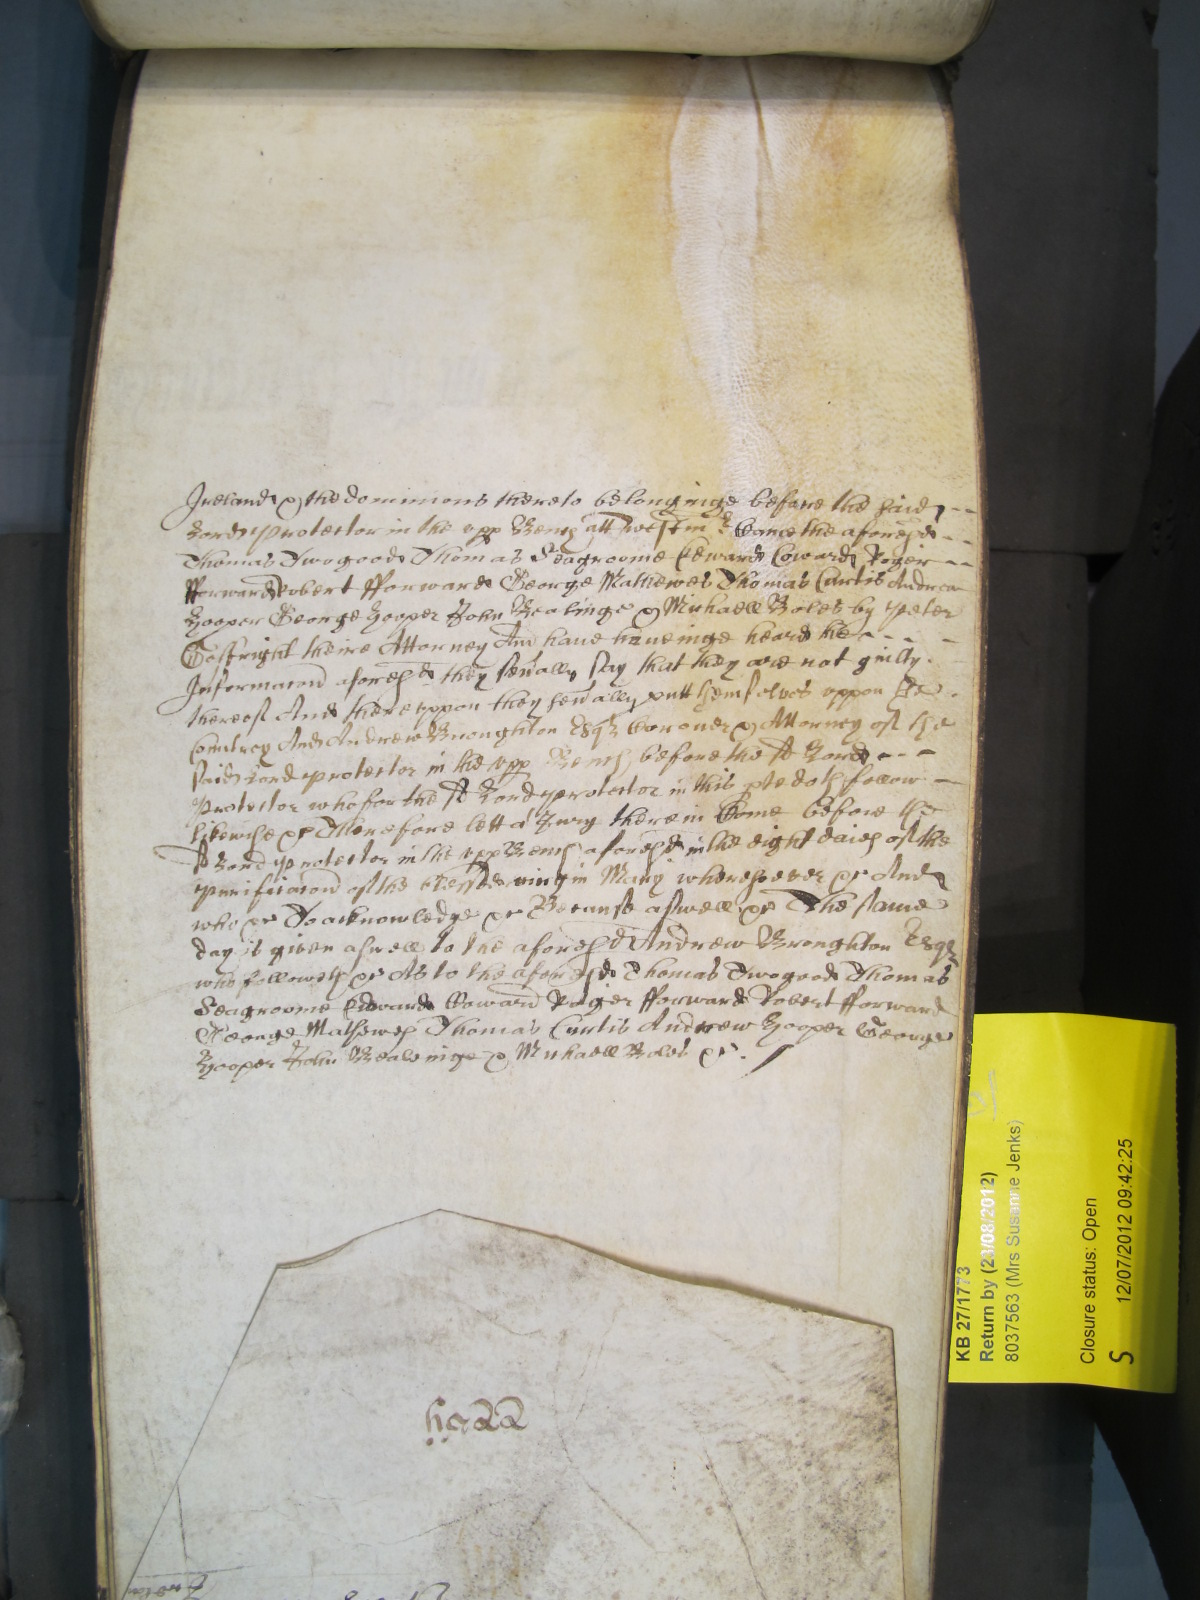 Ireland & the dominions thereto belonginge before the said
Lord Protector in the upp Bench att Westmr Come the aforesd
Thomas Twogood Thomas Seagroome Edward Coward Roger
fforward Robert fforward George Mathewes Thomas Curtis Andrew
Hooper George Hooper John Bealinge & Michaell Boles by Peter
Gostright theire Attorney And haue haueinge heard the
Informacon aforesd they seually say that they are not guilty
thereof And thereuppon they seually putt themselves uppon the
Countrey And Andrew Broughton Esqr Coroner & Attorney of the
said Lord Protector in the upp Bench before the sd Lord
Protector who for the sd Lord Protector in this pte doth follow
likewise &c Therefore lett a Jury therein Come before the
sd Lord Protector in the upp Bench aforesd in the eight daies of the
Purificacon of the blessed virgin Mary wheresoever &c And
who &c To acknowledge &c Because aswell &c The same
day is given aswell to the aforesd Andrew Broughton Esqr
who followeth &c As to the aforesd Thomas Twogood Thomas
Seagroome Edward Coward Roger fforward Robert fforward
George Mathewes Thomas Curtis Andrew Hooper George
Hooper John Bealinge & Michaell Boles &c.
KB 27/1773
Return by (23/08/2012)
8037563 (Mrs Susanne Jenks)
Closure status: Open
S 12/07/2012 09:42:25